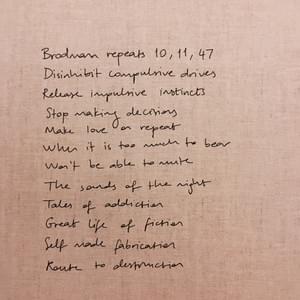 Brodman repeats 10, 11, 47
Disinhibit compulsive drives
Release impulsive instincts
Stop making decisions
Make love on repeat
When it is too much to bear
Won't be able to mute
The sounds of the night
Tales of addiction
Great life of fiction
Self made fabrication
Route to destruction